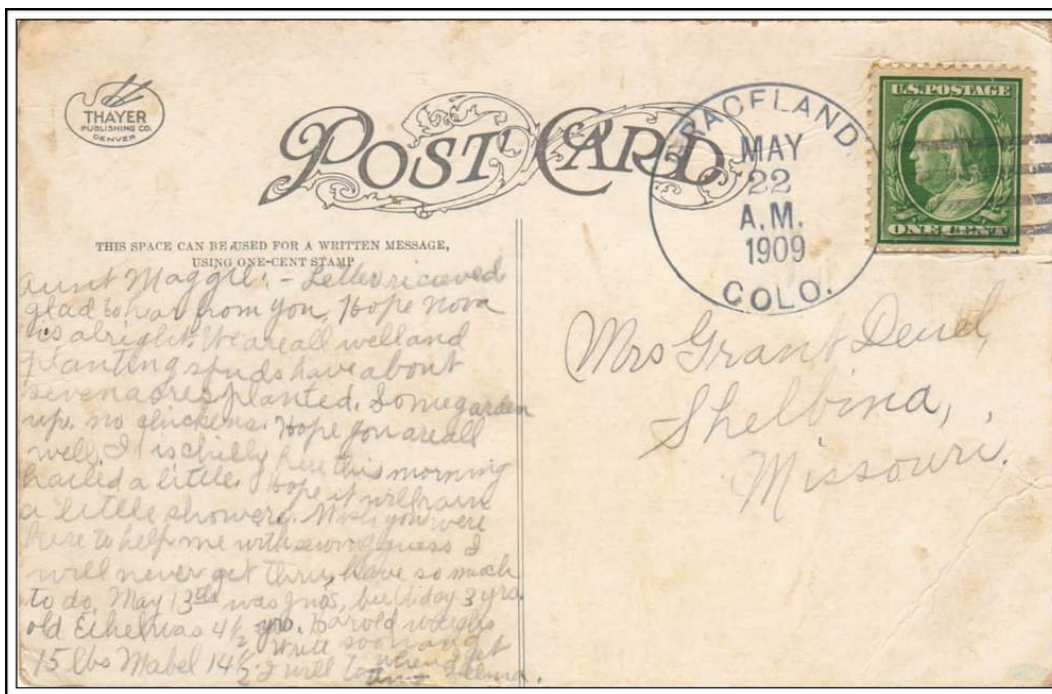 THAYER
PUBLISHING CO.
DENVER
POST CARD
GRACELAND
MAY
22
A.M.
1909
COLO.
U.S. POSTAGE
ONE CENT
THIS SPACE CAN BE USED FOR A WRITTEN MESSAGE,
USING ONE-CENT STAMP
Aunt Maggie: - Letter recieved
glad to hear from you, Hope Nova
is alright. We are all well and
planting spuds have about
seven acres planted. Some garden
up. no chickens. Hope you are all
well. It is chilly here this morning
hailed a little. Hope it will rain
a little shower. Wish you were
here to help me with sewing guess I
will never get thru, have so much
to do. May 13th was birthday 3 yrs.
old Ethel was 4 1/2 yrs. Harold weighs
15 lbs Mabel 14 1/2. I will
Write soon and
Mrs Grant Deuel,
Shelbina,
Missouri.